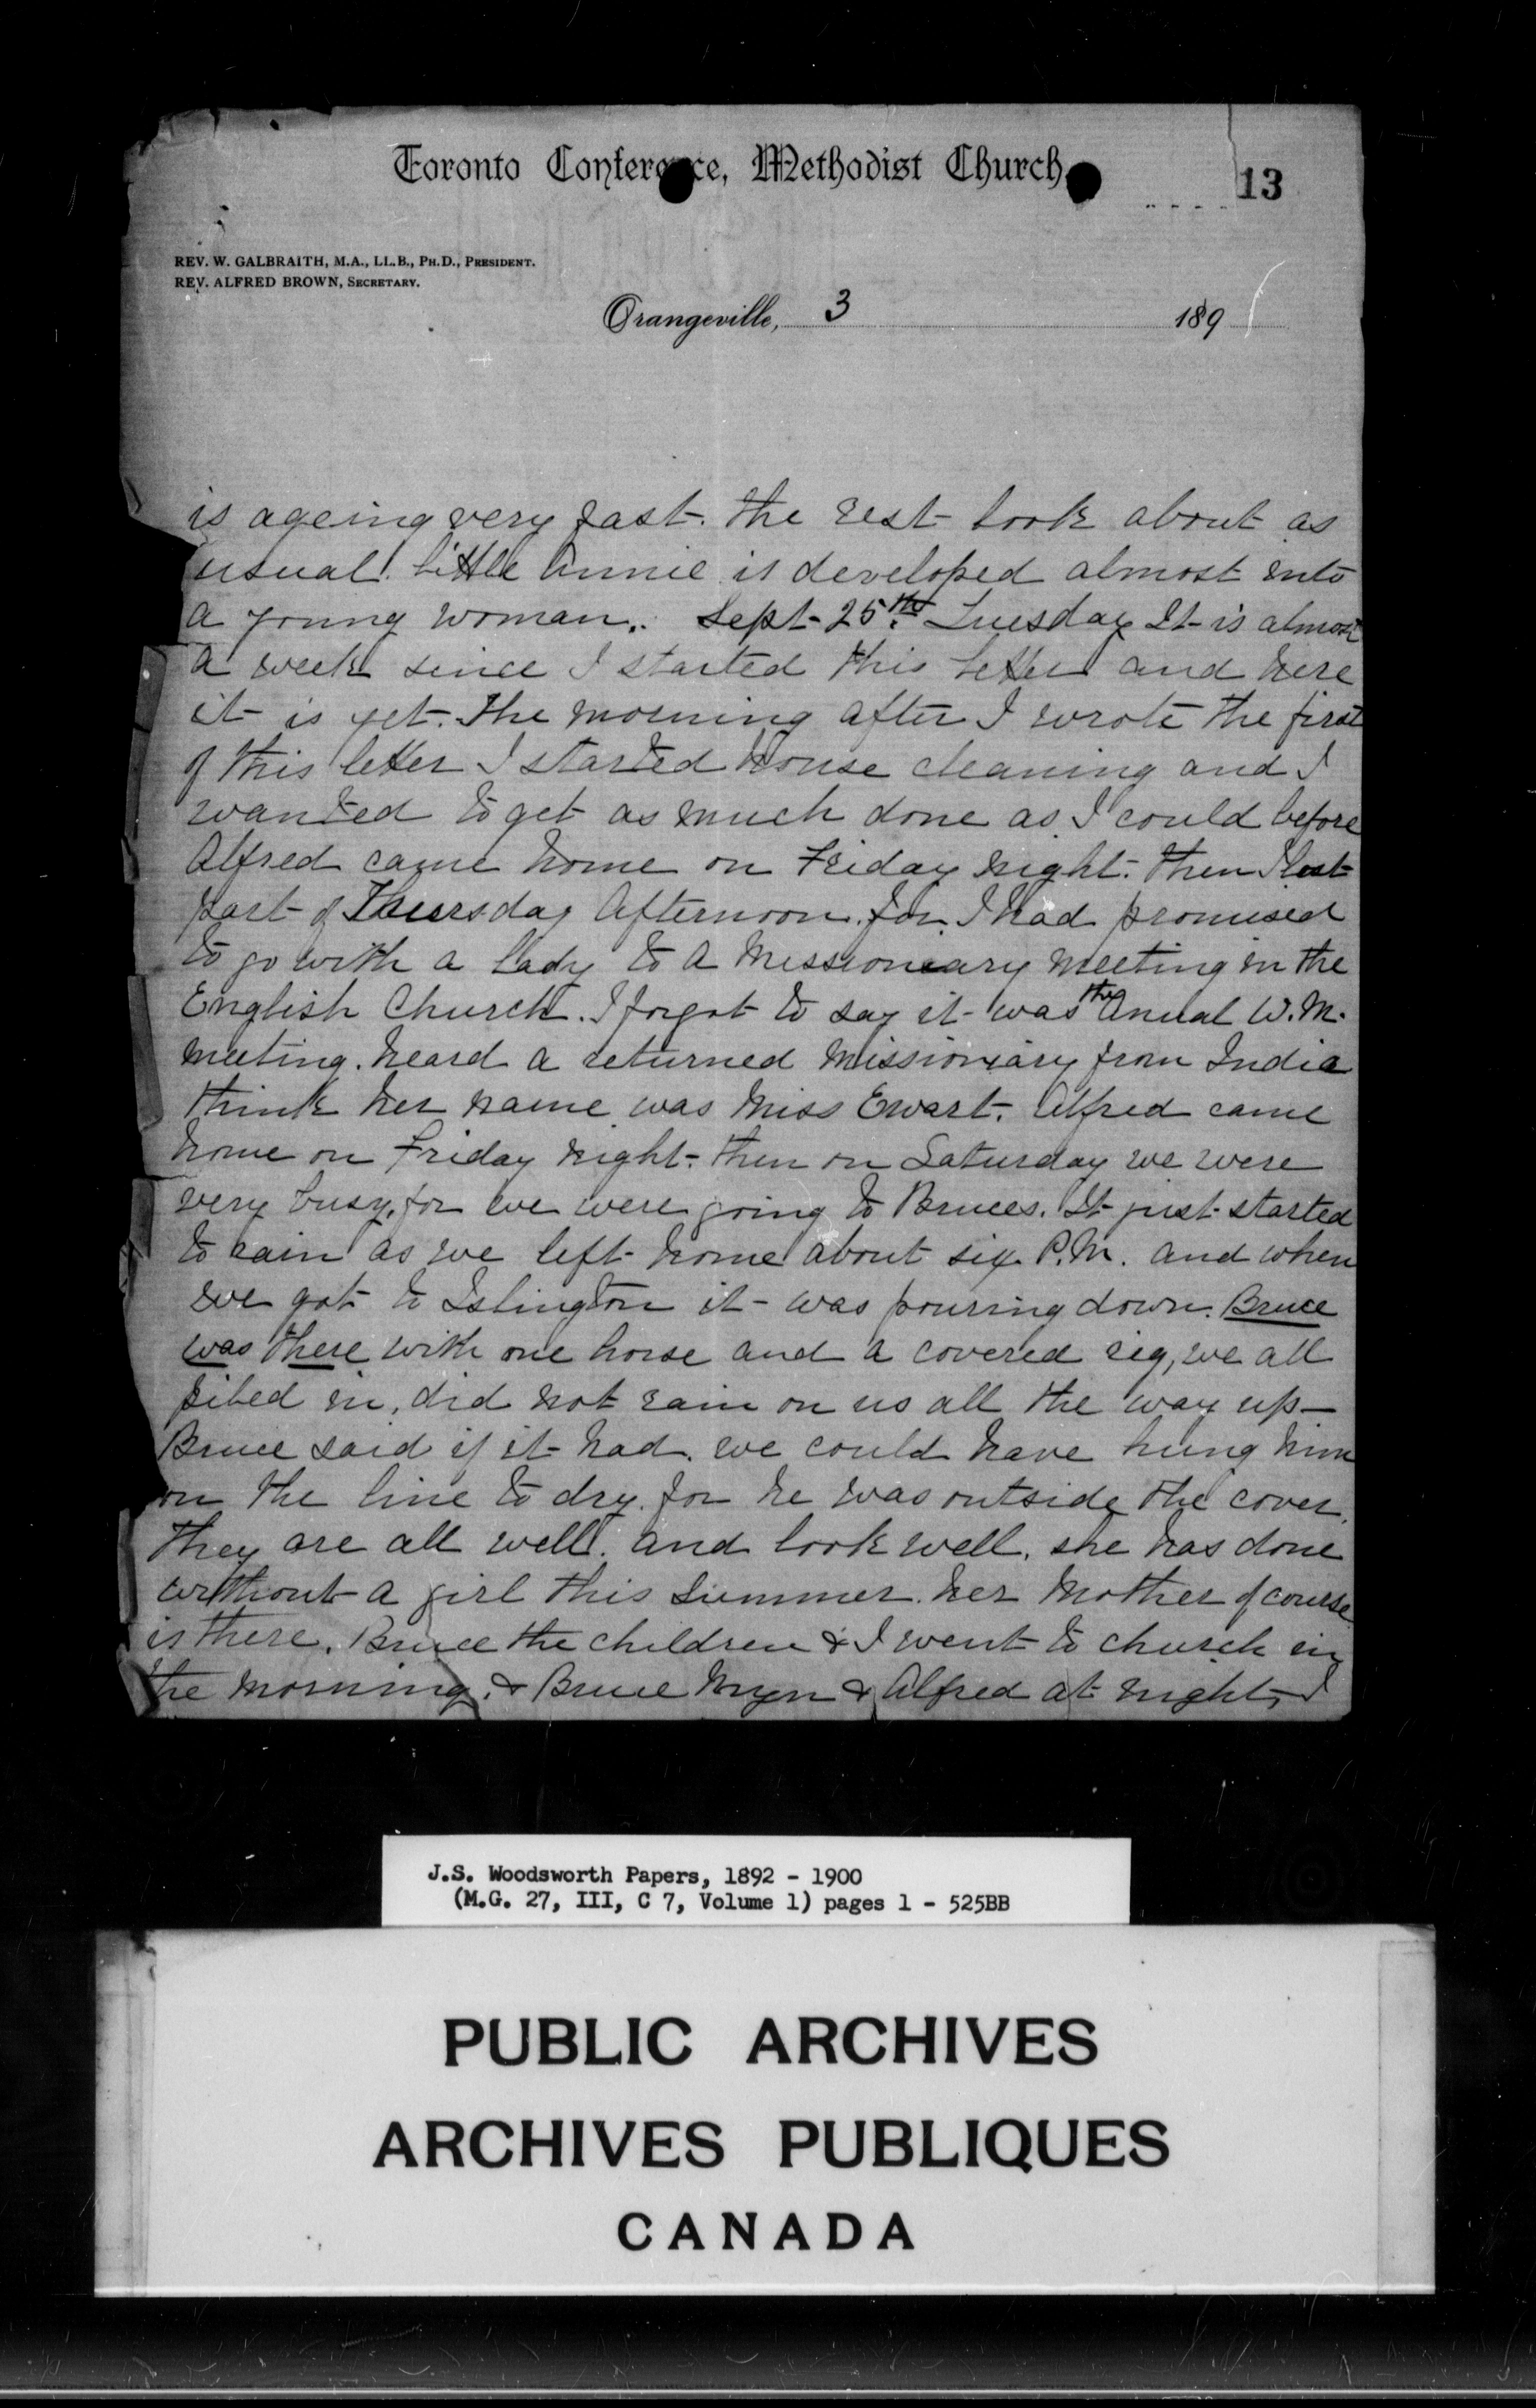 Toronto Conference, Methodist Church,
13
REV. W. GALBRAITH, M.A., LL.B., PH.D., PRESIDENT.
REV. ALFRED BROWN, SECRETARY.
Orangeville, 3 189
is ageing very fast. the rest look about as
usual. little Annie is developed almost into
a young woman. Sept 25th. Tuesday It is almost
a week since I started this letter and here
it is yet. The morning after I wrote the first
of this letter I started house cleaning and I
wanted to get as much done as I could before
Alfred came home on Friday night. then I lost
part of Thursday afternoon. for I had promised
to go with a lady to a Missionary meeting in the
English Church. I forgot to say it was the Anual W.M.
meeting. heard a returned missionary from India
think her name was Miss Ewart. Alfred came
home on Friday night. then on Saturday we were
very busy, for we were going to Bruces. It just started
to rain as we left home about six P.M. and when
we got to Islington it was pouring down. Bruce
was there with one horse and a covered rig, we all
piled in, did not rain on us all the way up
Bruce said if it had. we could have hung him
on the line to dry. for he was outside the cover.
They are all well. and look well. she has done
without a girl this summer. her mother of course
is there. Bruce the children & I went to church in
the morning. & Bruce & Alfred at night, I
J.S. Woodsworth Papers, 1892 - 1900
(M.G. 27, III, C 7, Volume 1) pages 1 - 525BB
PUBLIC ARCHIVES
ARCHIVES PUBLIQUES
CANADA